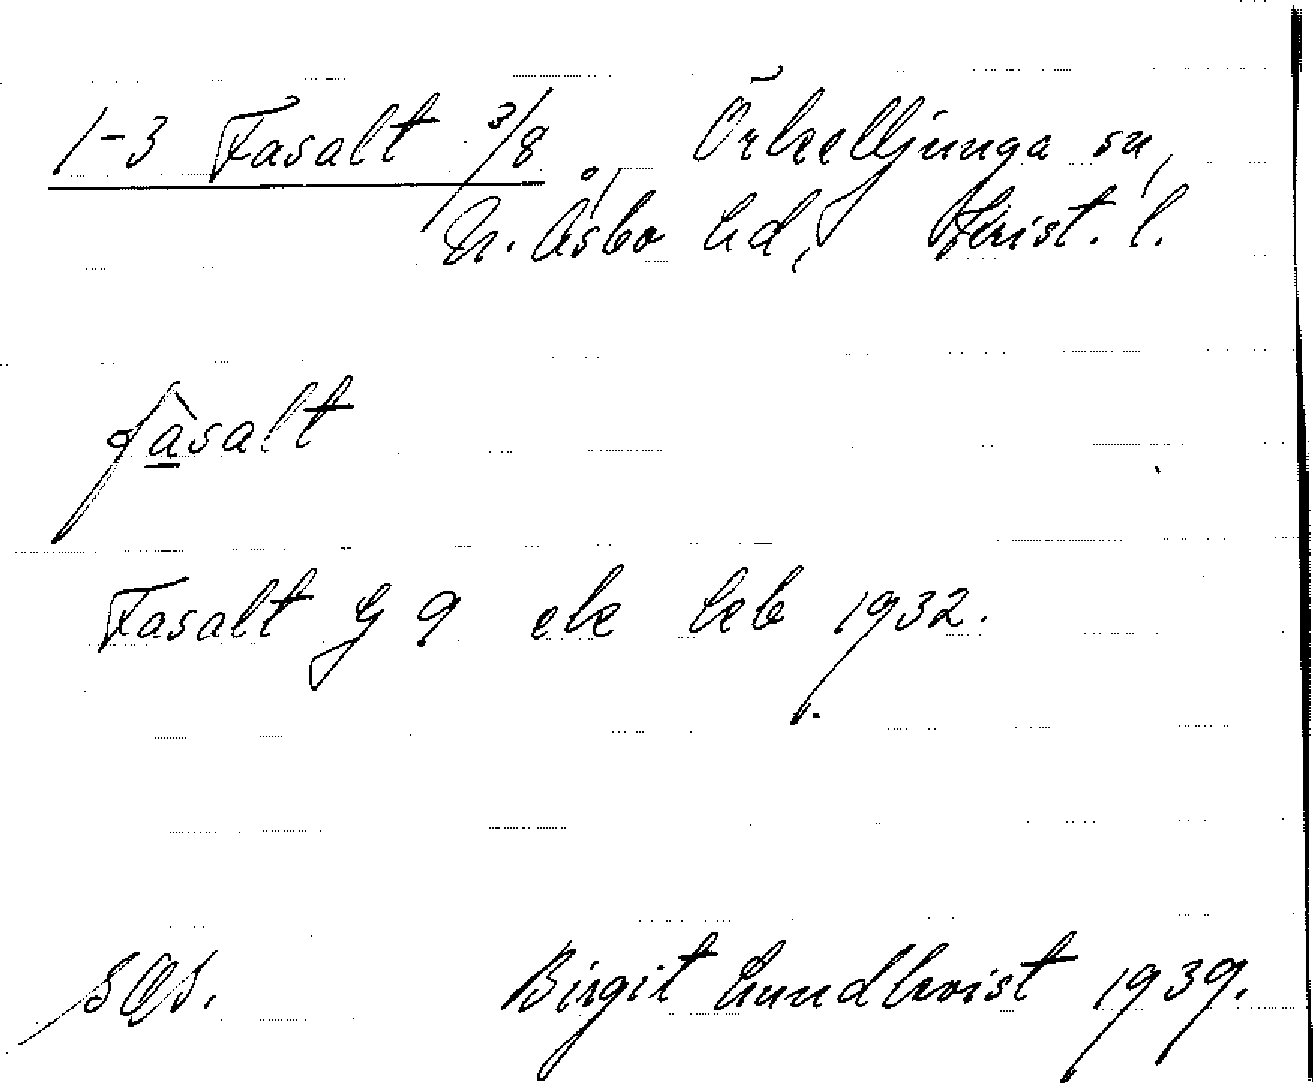 1-3 Fasalt 3/8 Örkelljunga sn,
N. Åsbo hd, Krist. l.
fàsalt
Fasalt G 9 ek kb 1932.
SOS. Birgit Lundkvist 1939.